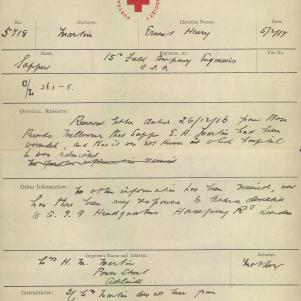 AUSTRA
SOCIETY
No. Surname. Christian Names.
5418 Martin Ernest Henry 5/2/17
Rank. Regiment, &c. File No.
Sapper 15th Field Company Engineers
A.I.F.
OFFICIAL REPORTS: Received letter dated 26/12/16 from Base
Records Melbourne that Sapper E. H. Martin had been
wounded, and that it was not known in which hospital
he was admitted.
Other Information: No other information has been received, nor
has there been any response to
A.I.F. Headquarters Horseferry Rd London
Inquirer's Name and Address. Relation.
H. M. Martin Mother
Power Street
Adelaide
Instructions: If Martin does not hear from